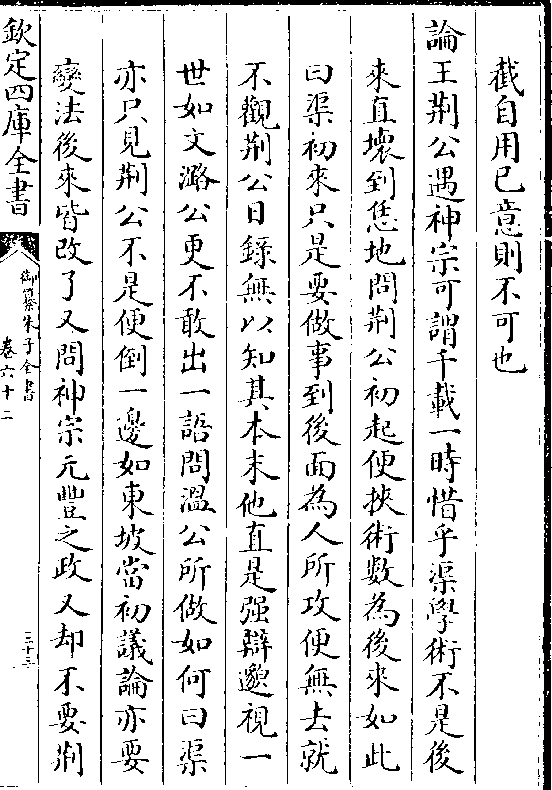 截自用已意則不可也
論王荆公遇神宗可謂千載一時惜乎渠學術不是後
來直壊到恁地問荆公初起便挾術數為後來如此
曰渠初來只是要做事到後面為人所攻便無去就
不觀荆公日錄無以知其本末他直是强辯邈視一
世如文潞公更不敢出一語問温公所做如何曰渠
亦只見荆公不是便倒一邊如東坡當初議論亦要
變法後來皆改了又問神宗元豐之政又却不要荆
欽定四庫全書
御纂朱子全書
卷六十二
三十三